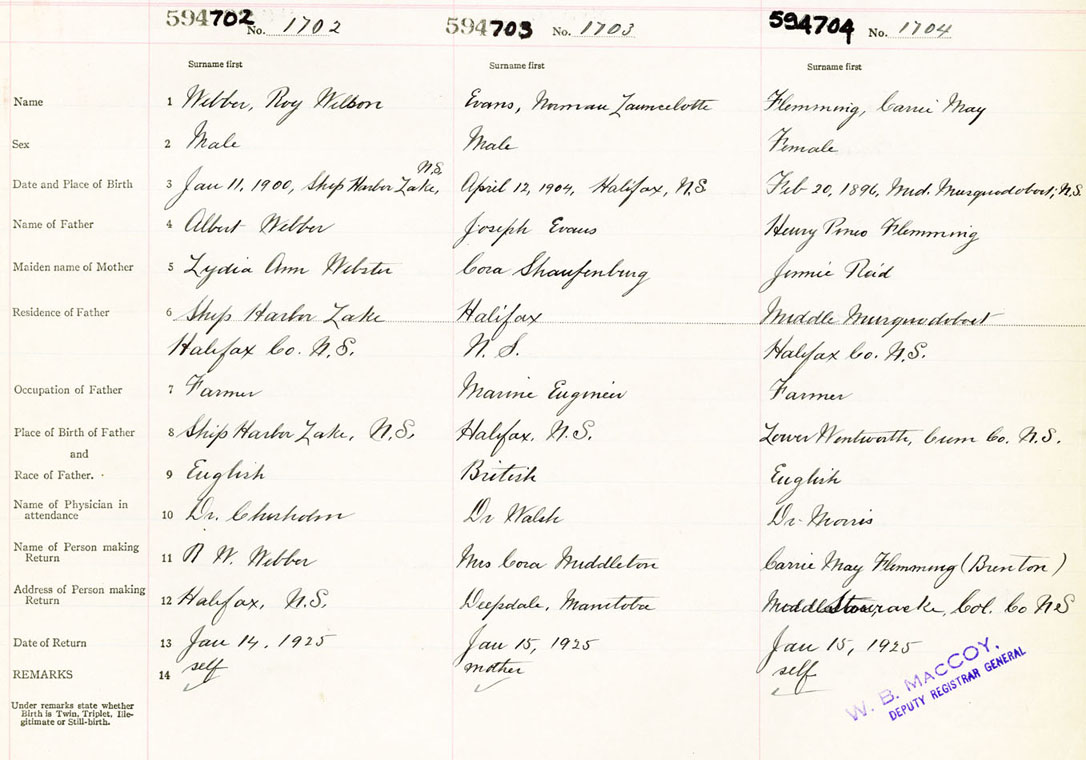 594702 No. 1702 594703 No. 1703 594704 No. 1704
Surname first Surname first Surname first
Name 1 Webber, Roy Wilson Evans, Norman Launcelotte Flemming, Carrie May
Sex 2 Male Male Female
N.S.
Date and Place of Birth 3 Jan 11, 1900, Ship Harbor Lake, April 12, 1904, Halifax, N.S Feb 20, 1896, Mid. Musquodoboit, N.S
Name of Father 4 Albert Webber Joseph Evans Henry Pineo Flemming
Maiden name of Mother 5 Lydia Ann Webster Cora Shaufenburg Jennie Reid
Residence of Father 6 Ship Harbor Lake Halifax Middle Musquodoboit
Halifax Co. N.S. N. S. Halifax Co. N.S.
Occupation of Father 7 Farmer Marine Engineer Farmer
Place of Birth of Father 8 Ship Harbor Lake, N.S. Halifax, N.S. Lower Wentworth, Cum Co. N.S.
and
Race of Father. 9 English British English
Name of Physician in
attendance 10 Dr. Chisholm Dr Walsh Dr. Morris
Name of Person making
Return 11 R W. Webber Mrs Cora Middleton Carrie May Flemming (Brenton)
Address of Person making
Return 12 Halifax, N.S. Deepdale, Manitoba Col. Co N S
Date of Return 13 Jan 14, 1925 Jan 15, 1925 Jan 15, 1925
REMARKS 14 self mother self
Under remarks state whether
Birth is Twin, Triplet, Ille-
gitimate or Still-birth.
W. B. MACCOY,
DEPUTY REGISTRAR GENERAL